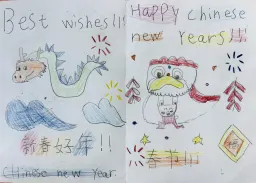 Best wishes!!!
新春好年!!
Chinese new year.
Happy chinese
new years!!!
春节!!!